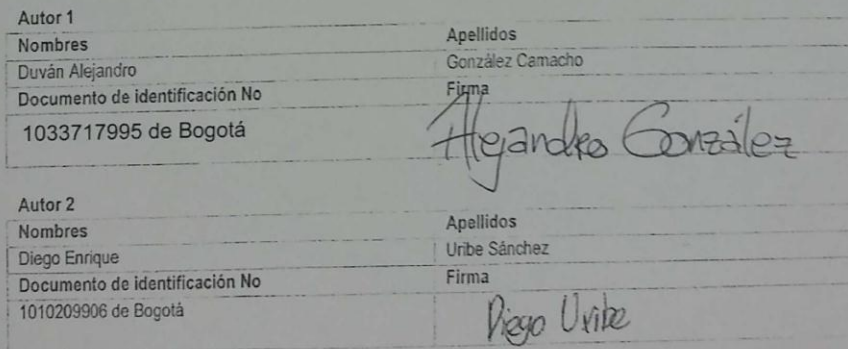 Autor 1
Nombres Apellidos
Duván Alejandro González Camacho
Documento de identificación No Firma
1033717995 de Bogotá Alejandro González
Autor 2
Nombres Apellidos
Diego Enrique Uribe Sánchez
Documento de identificación No Firma
1010209906 de Bogotá Diego Uribe